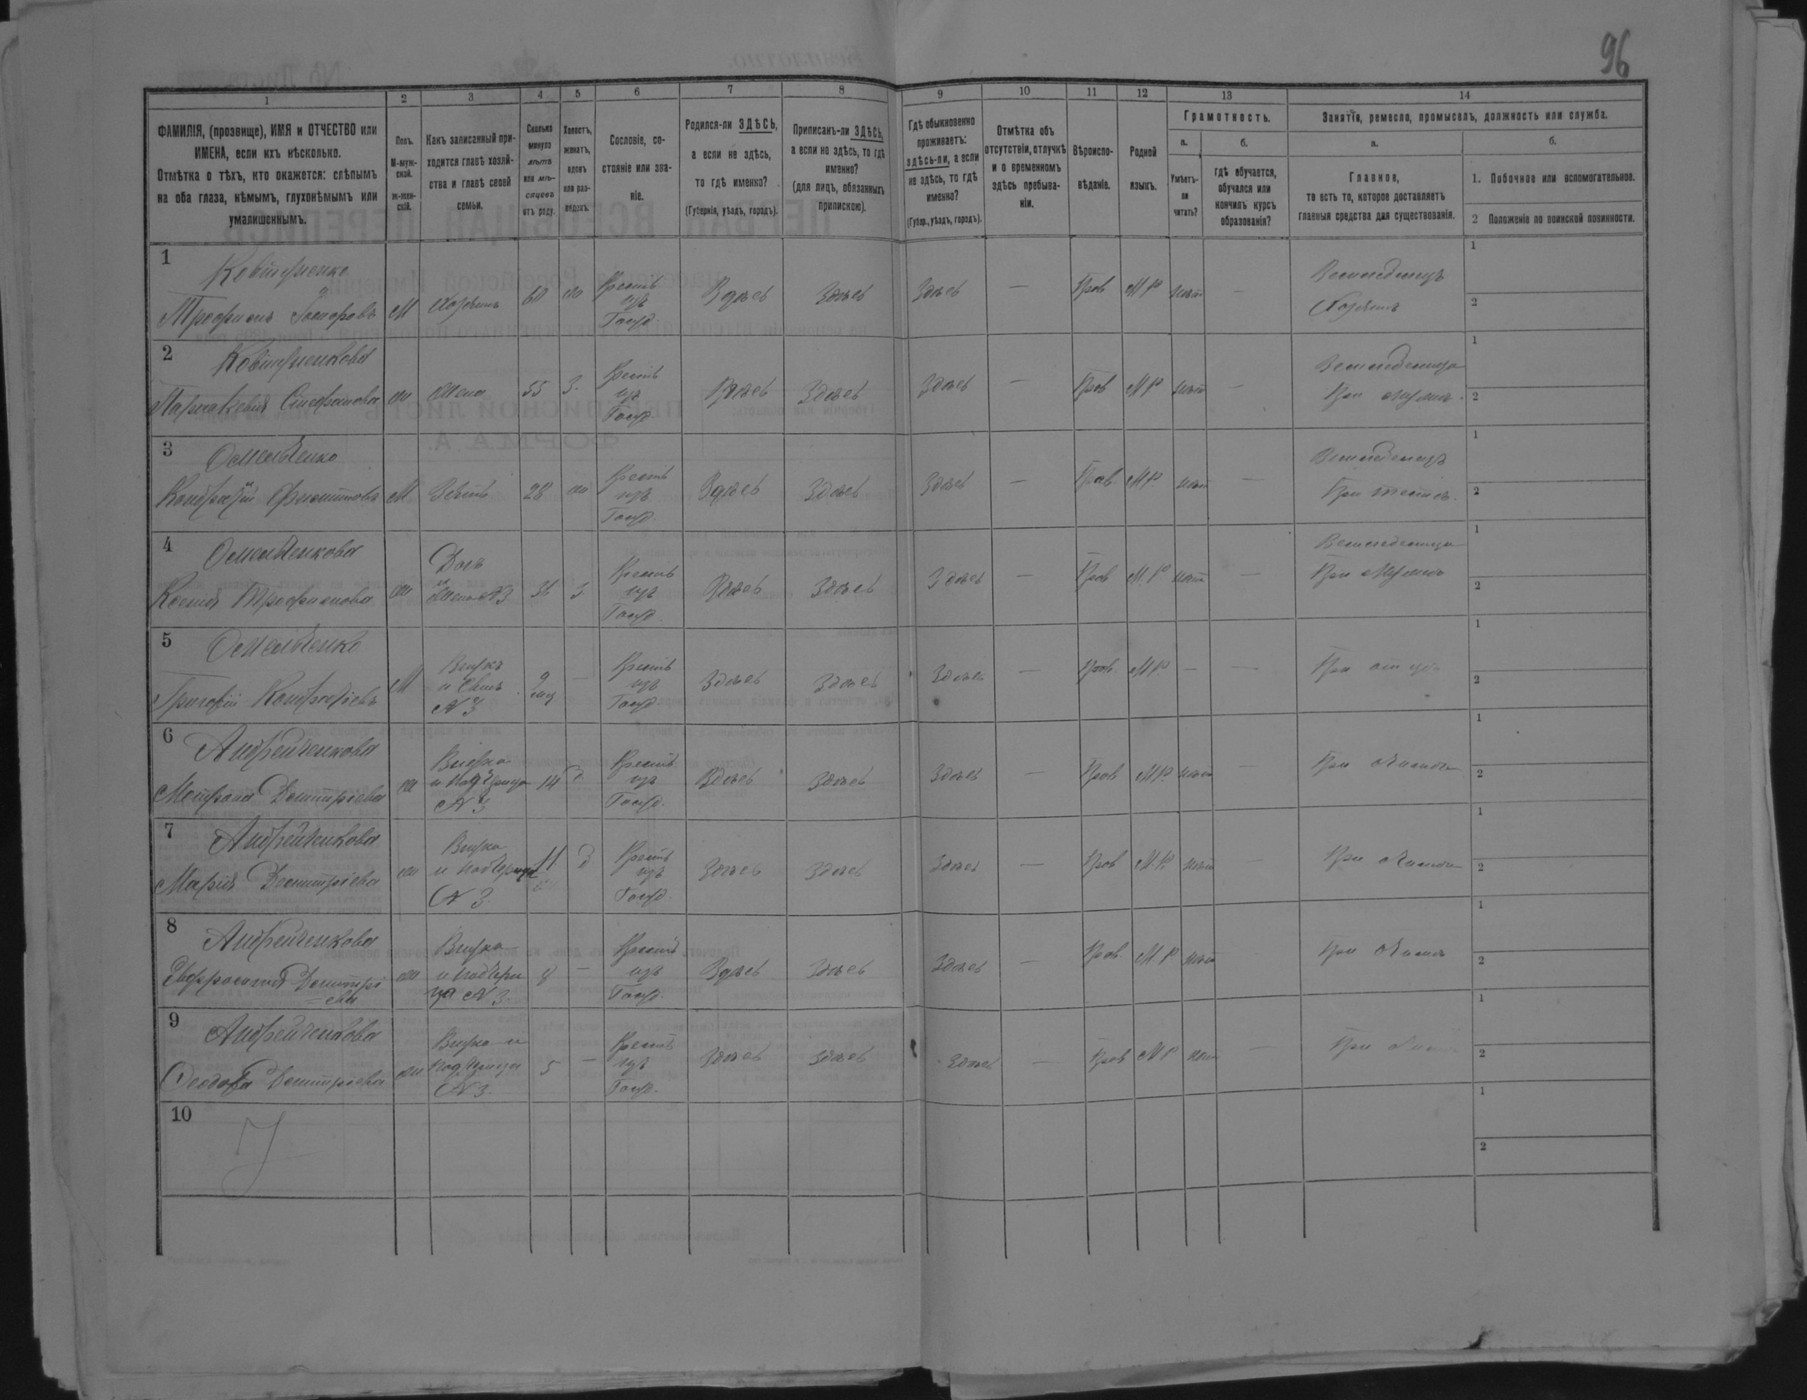 96
1 2 3 4 5 6 7 8 9 10 11 12 13 14
ФАМИЛІЯ, (прозвище), ИМЯ и ОТЧЕСТВО или
ИМЕНА, если ихъ нѣсколько.
Отмѣтка о тѣхъ, кто окажется: слѣпымъ
на оба глаза, нѣмымъ, глухонѣмымъ или
умалишеннымъ.
Полъ.
М-муж-
ской.
Ж-жен-
скій.
Какъ записанный при-
ходится главѣ хозяй-
ства и главѣ своей
семьи.
Сколько
минуло
лѣтъ
или мѣ-
сяцевъ
отъ роду.
Холостъ,
женатъ,
вдовъ
или раз-
веденъ.
Сословіе, со-
стояніе или зва-
ніе.
Родился-ли ЗДѢСЬ,
а если не здѣсь,
то гдѣ именно?
(Губернія, уѣздъ, городъ).
Приписанъ-ли ЗДѢСЬ,
а если не здѣсь, то гдѣ
именно?
(для лицъ, обязанныхъ
припискою).
Гдѣ обыкновенно
проживаетъ:
здѣсь-ли, а если
не здѣсь, то гдѣ
именно?
(Губер., уѣздъ, городъ).
Отмѣтка объ
отсутствіи, отлучкѣ
и о временномъ
здѣсь пребыва-
ніи.
Вѣроиспо-
вѣданіе.
Родной
языкъ.
Грамотность.
а.
Умѣетъ-
ли
читать?
б.
гдѣ обучается,
обучался или
кончилъ курсъ
образованія?
Занятіе, ремесло, промыселъ, должность или служба.
а.
Главное,
то есть то, которое доставляетъ
главныя средства для существованія.
б.
1. Побочное или вспомогательное.
2 Положеніе по воинской повинности.
1
Ковтуненко
Трофимъ М Хозяинъ 60 ж Крестъ
изъ
Госуд. Здѣсь Здѣсь Здѣсь — Прав МР нѣтъ — Земледѣлецъ
Хозяинъ
1
2
2
Параскевія Стефанова ж Жена 55 З. Крестъ
изъ
Госуд. Здѣсь Здѣсь Здѣсь — Прав МР нѣтъ — Земледѣлица
При мужѣ
1
2
3
Омельченко
Кондратій М Зять 28 ж Крестъ
изъ
Госуд. Здѣсь Здѣсь Здѣсь — Прав МР нѣтъ Земледѣлецъ
При тестѣ
1
2
4
Омельченкова
Ксенія Трофимова ж Дочь
и жена №3 36 З Крестъ
изъ
Госуд. Здѣсь Здѣсь Здѣсь — Прав М.Р нѣтъ — Земледѣлица
При мужѣ
1
2
5
Омельченко
Григорій Кондратьевъ М Внукъ
и сынъ
№3 9
мѣс — Крестъ
изъ
Госуд Здѣсь Здѣсь Здѣсь — Прав МР — — При отцѣ
1
2
6
Андрейченкова
Матрона Дмитріева ж Внучка
и падчерица
№3 14 Крестъ
изъ
Госуд. Здѣсь Здѣсь Здѣсь — Прав МР нѣтъ — При
1
2
7
Андрейченкова
Марія Дмитріева ж Внучка
и падчерица
№3. 11 Крестъ
изъ
Госуд. Здѣсь Здѣсь Здѣсь — Прав МР нѣтъ — При
1
2
8
Андрейченкова
Евфросинія Дмитріе
ва ж Внучка
и падчери
ца №3. — Крестъ
изъ
Госуд. Здѣсь Здѣсь Здѣсь — Прав. МР нѣтъ При
1
2
9
Андрейченкова
Феодора Дмитріева ж Внучка и
падчерица
№3. 5 — Крестъ
изъ
Госуд. Здѣсь Здѣсь Здѣсь — Прав МР нѣтъ — При
1
2
10
1
2